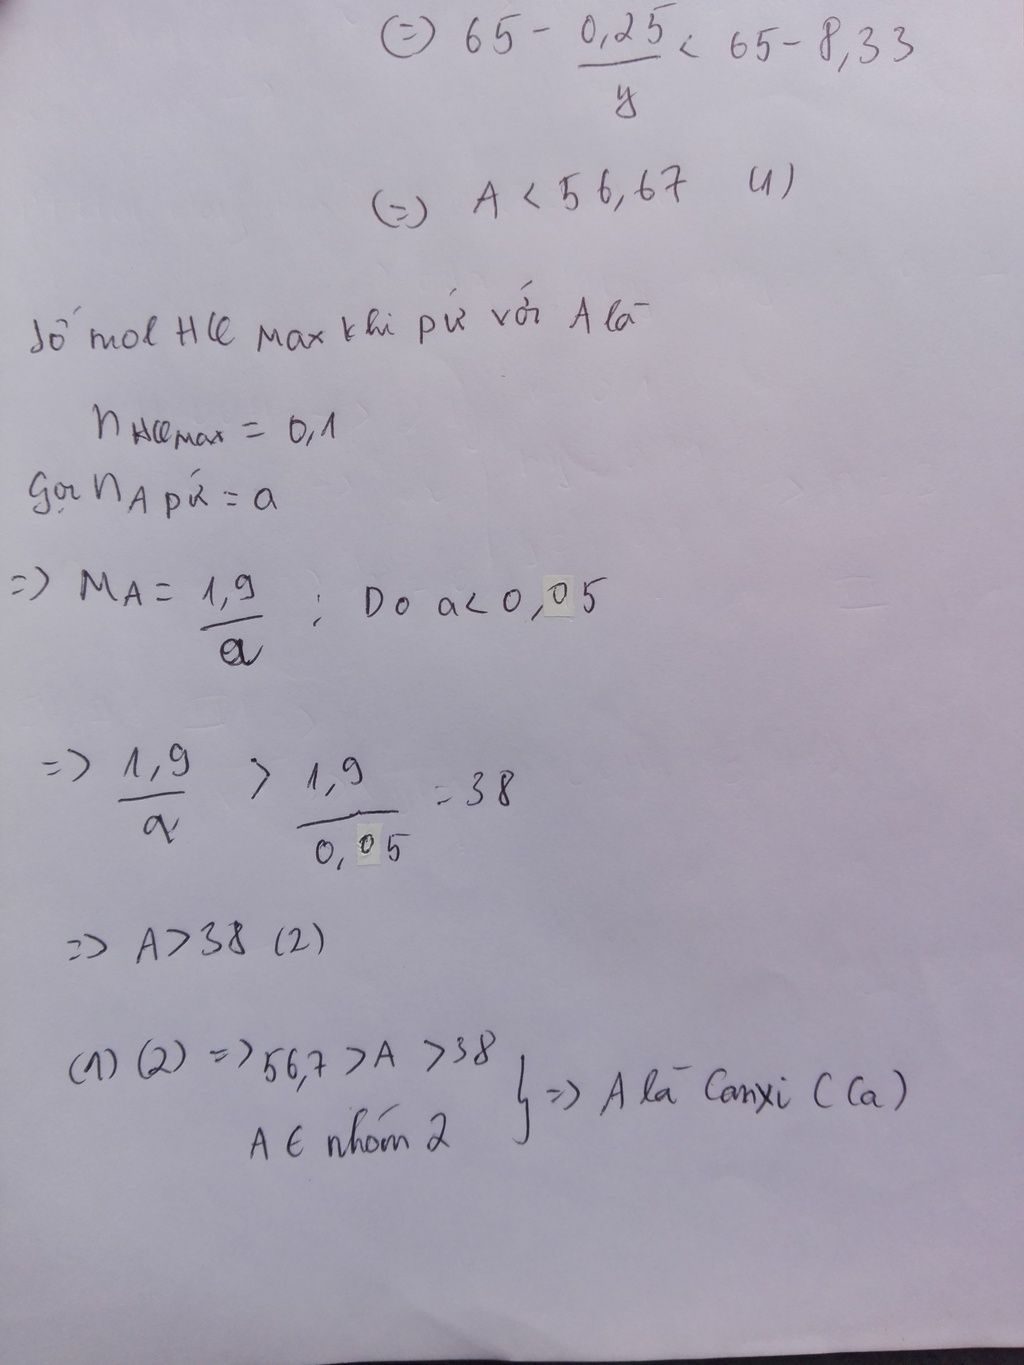 (=) 65 - 0,25/y < 65 - 8,33
(=) A < 56,67 (1)
Số mol HCl Max khi pứ với A là
nHCl Max = 0,1
Gọi nA pứ = a
=> MA = 1,9/a ; Do a < 0,05
=> 1,9/a > 1,9/0,05 = 38
=> A > 38 (2)
(1) (2) => 56,7 > A > 38
A ∈ nhóm 2 } => A là Canxi (Ca)